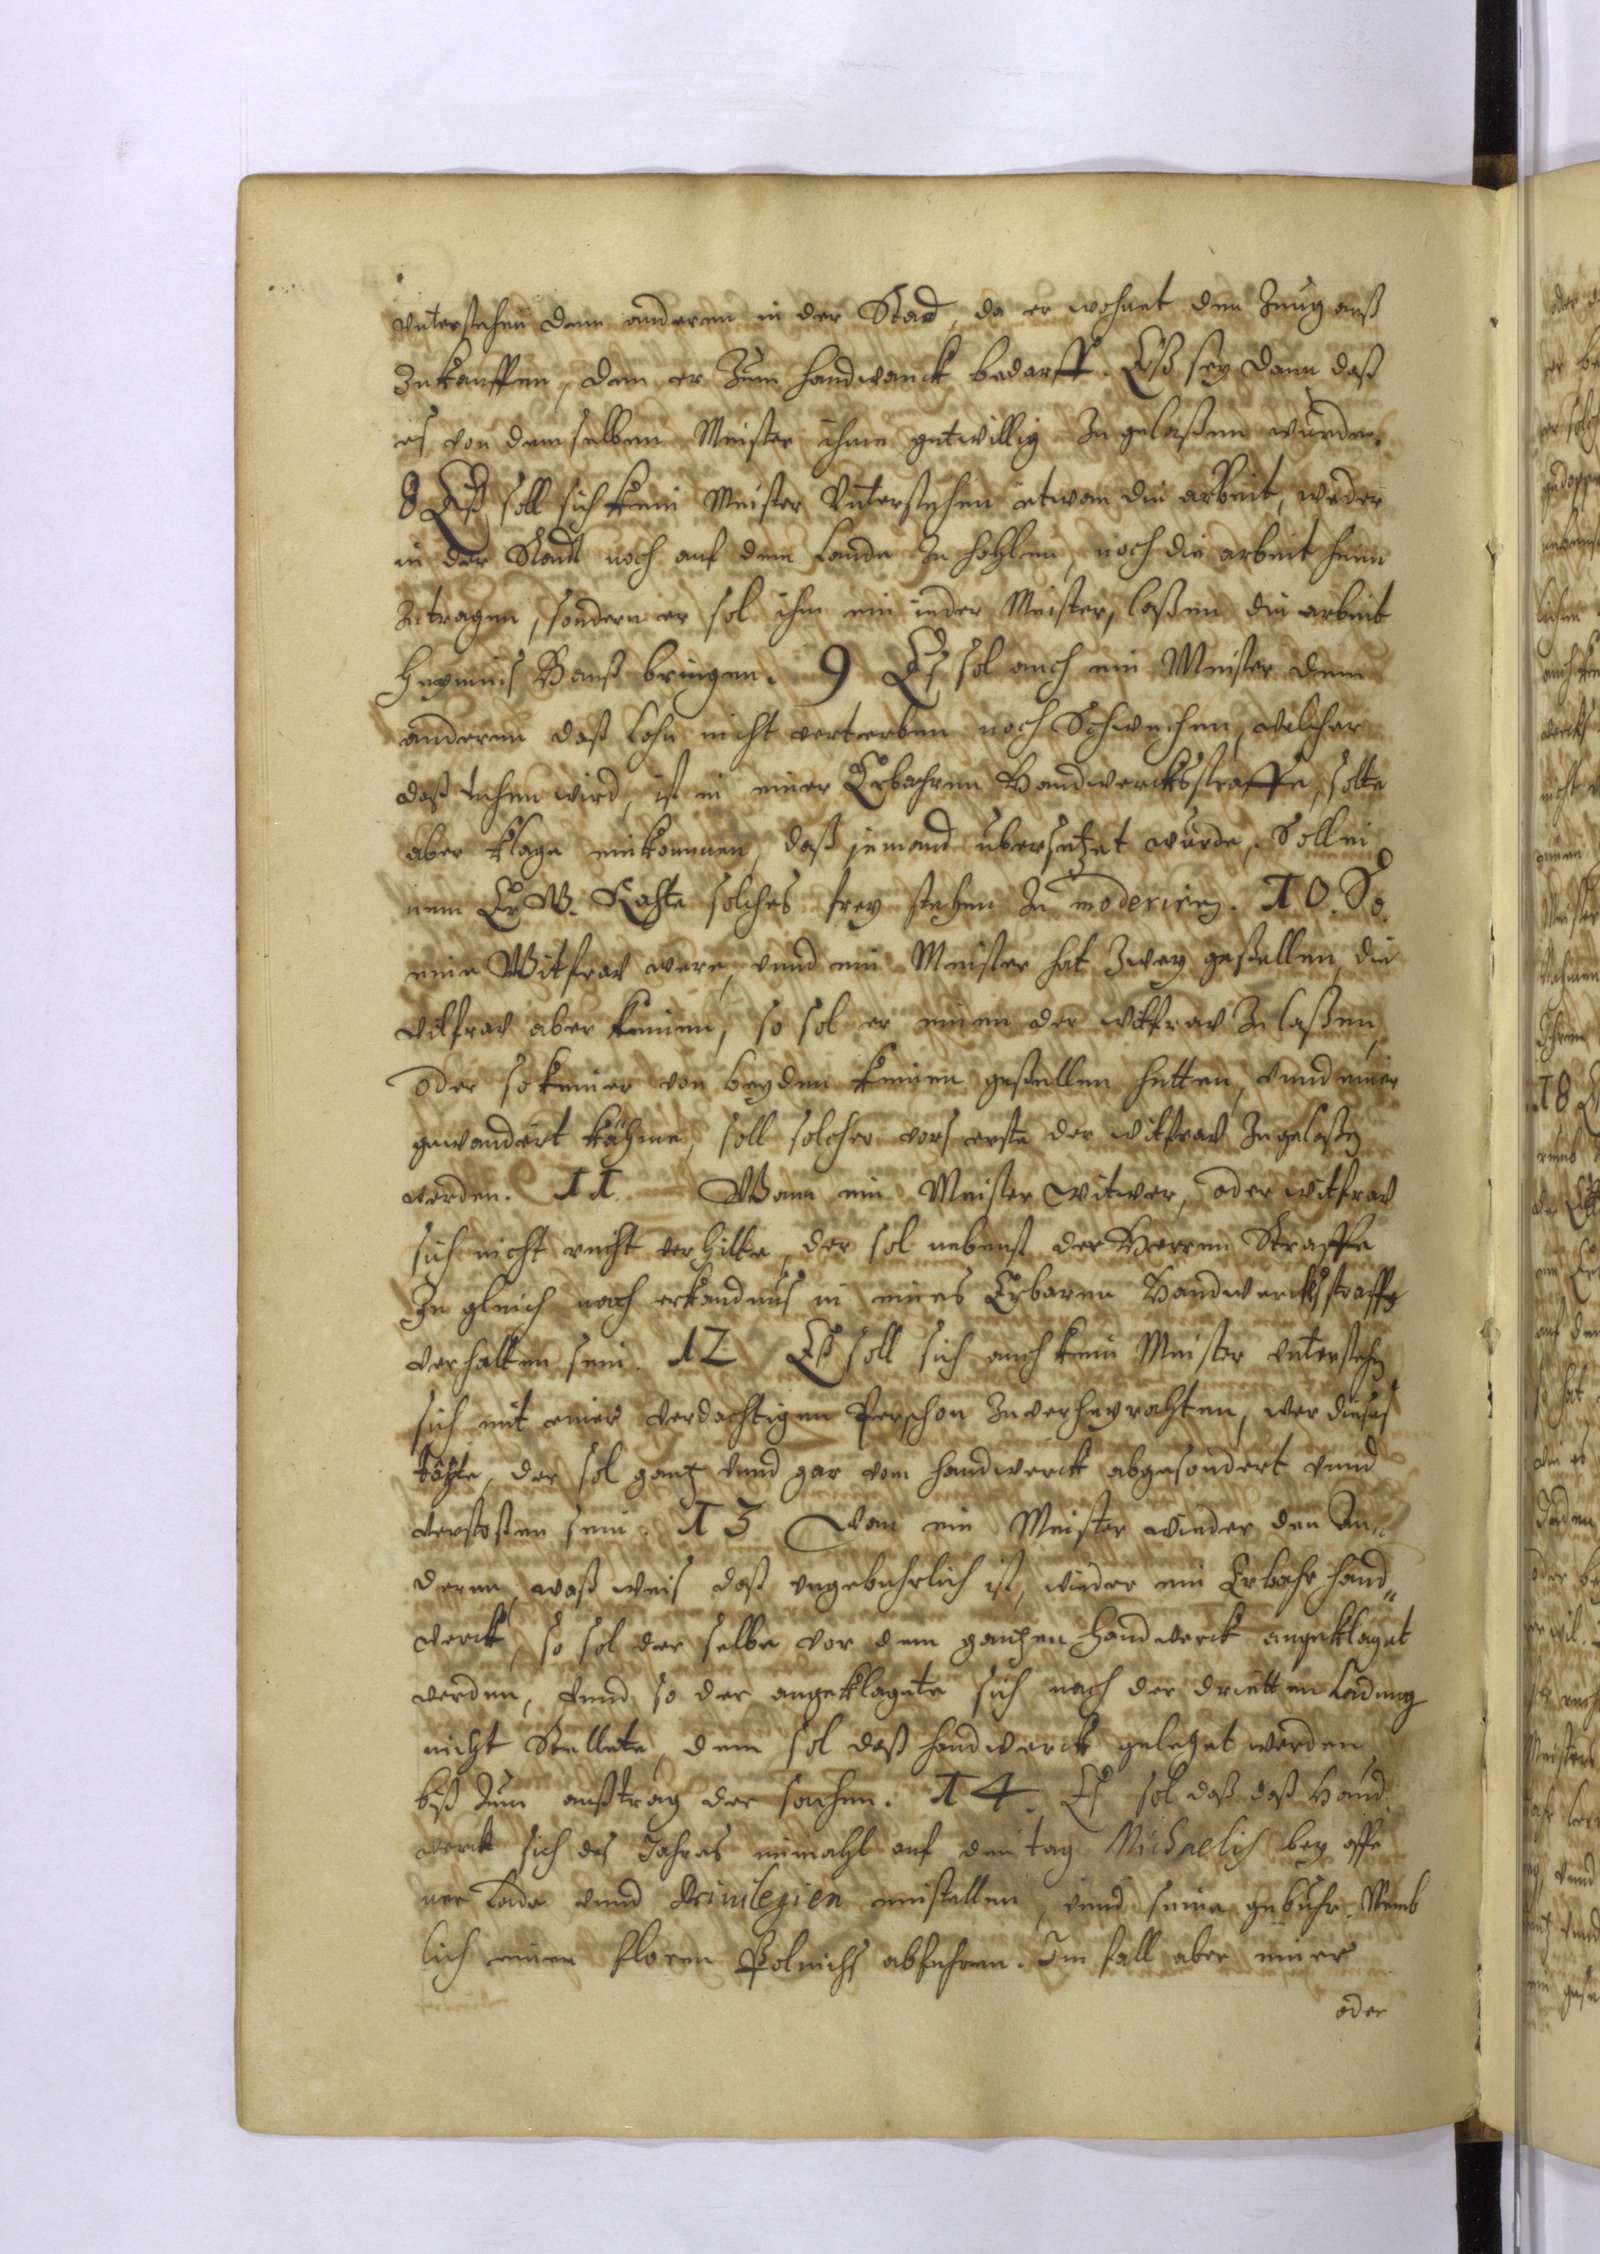 vnterstehen dem anderen in der Stad, da er wohnet den Zeug auß
Zukauffen, den er Zum handwerck bedarff. Eß sey dann daß
es von demselben Meister ihme gutwillig Zu gelaßen würde.
8 Eß soll sich kein Meister Vnterstehen etwan die arbeit, weder
in der Stadt noch auf dem Lande Zu hohlen, noch die arbeit heim
Zutragen, sondern er sol ihm ein ieder Meister, laßen die arbeit
Hauß bringen. 9 Eß sol auch ein Meister dem
anderen daß Lohn nicht verterben noch Schwechen, welcher
daß tuhen wird, ist in einer Erbahren Handwercksstraffe, solte
aber klage einkommen, daß jemand ubersetzet würde, Soll ei
nem Er W. Rahte solches frey stehen Zu moderiren. 10. So
eine Witfraw were, vnnd ein Meister hat Zwey gesellen, die
witfraw aber keinen, so sol er einen der witfraw Zu laßen,
oder so keiner von beyden keinen gesellen hetten, vnnd einer
gewandert kähme, soll solcher vors erste der witfraw Zugelaßen
werden. 11. Wann ein Meister witwer, oder witfraw
sich nicht recht verhilte, der sol nebenst der Herren Straffe
Zu gleich nach erkandnus in eines Erbaren Handwercksstraffe
verfallen sein. 12 Eß soll sich auch kein Meister vnterstehen
sich mit einer verdachtigen Perschon Zuverheyrahten, wer dieses
tähte, der sol gantz vnnd gar vom handwerck abgesondert vnnd
verstoßen sein. 13 Wan ein Meister wieder den An„
deren, waß weis daß vngebuhrlich ist, wieder ein Erbahr hand„
werck, so sol der selbe vor dem gantzen handwerck angeklaget
werden, vnnd so der angeklagete sich nach der dritten Ladung
nicht Stellete, dem sol daß handwerck geleget werden
biß Zum außtrag der sachen. 14. Eß sol daß daß Hand
werck sich des Jahres einmahl auf den tag Michaelis bey offe
ner Lade vnnd Privilegien einstellen, vnnd seine gebuhr. Nemb
lich einen floren Polnichs abfuhren. Im fall aber einer
oder